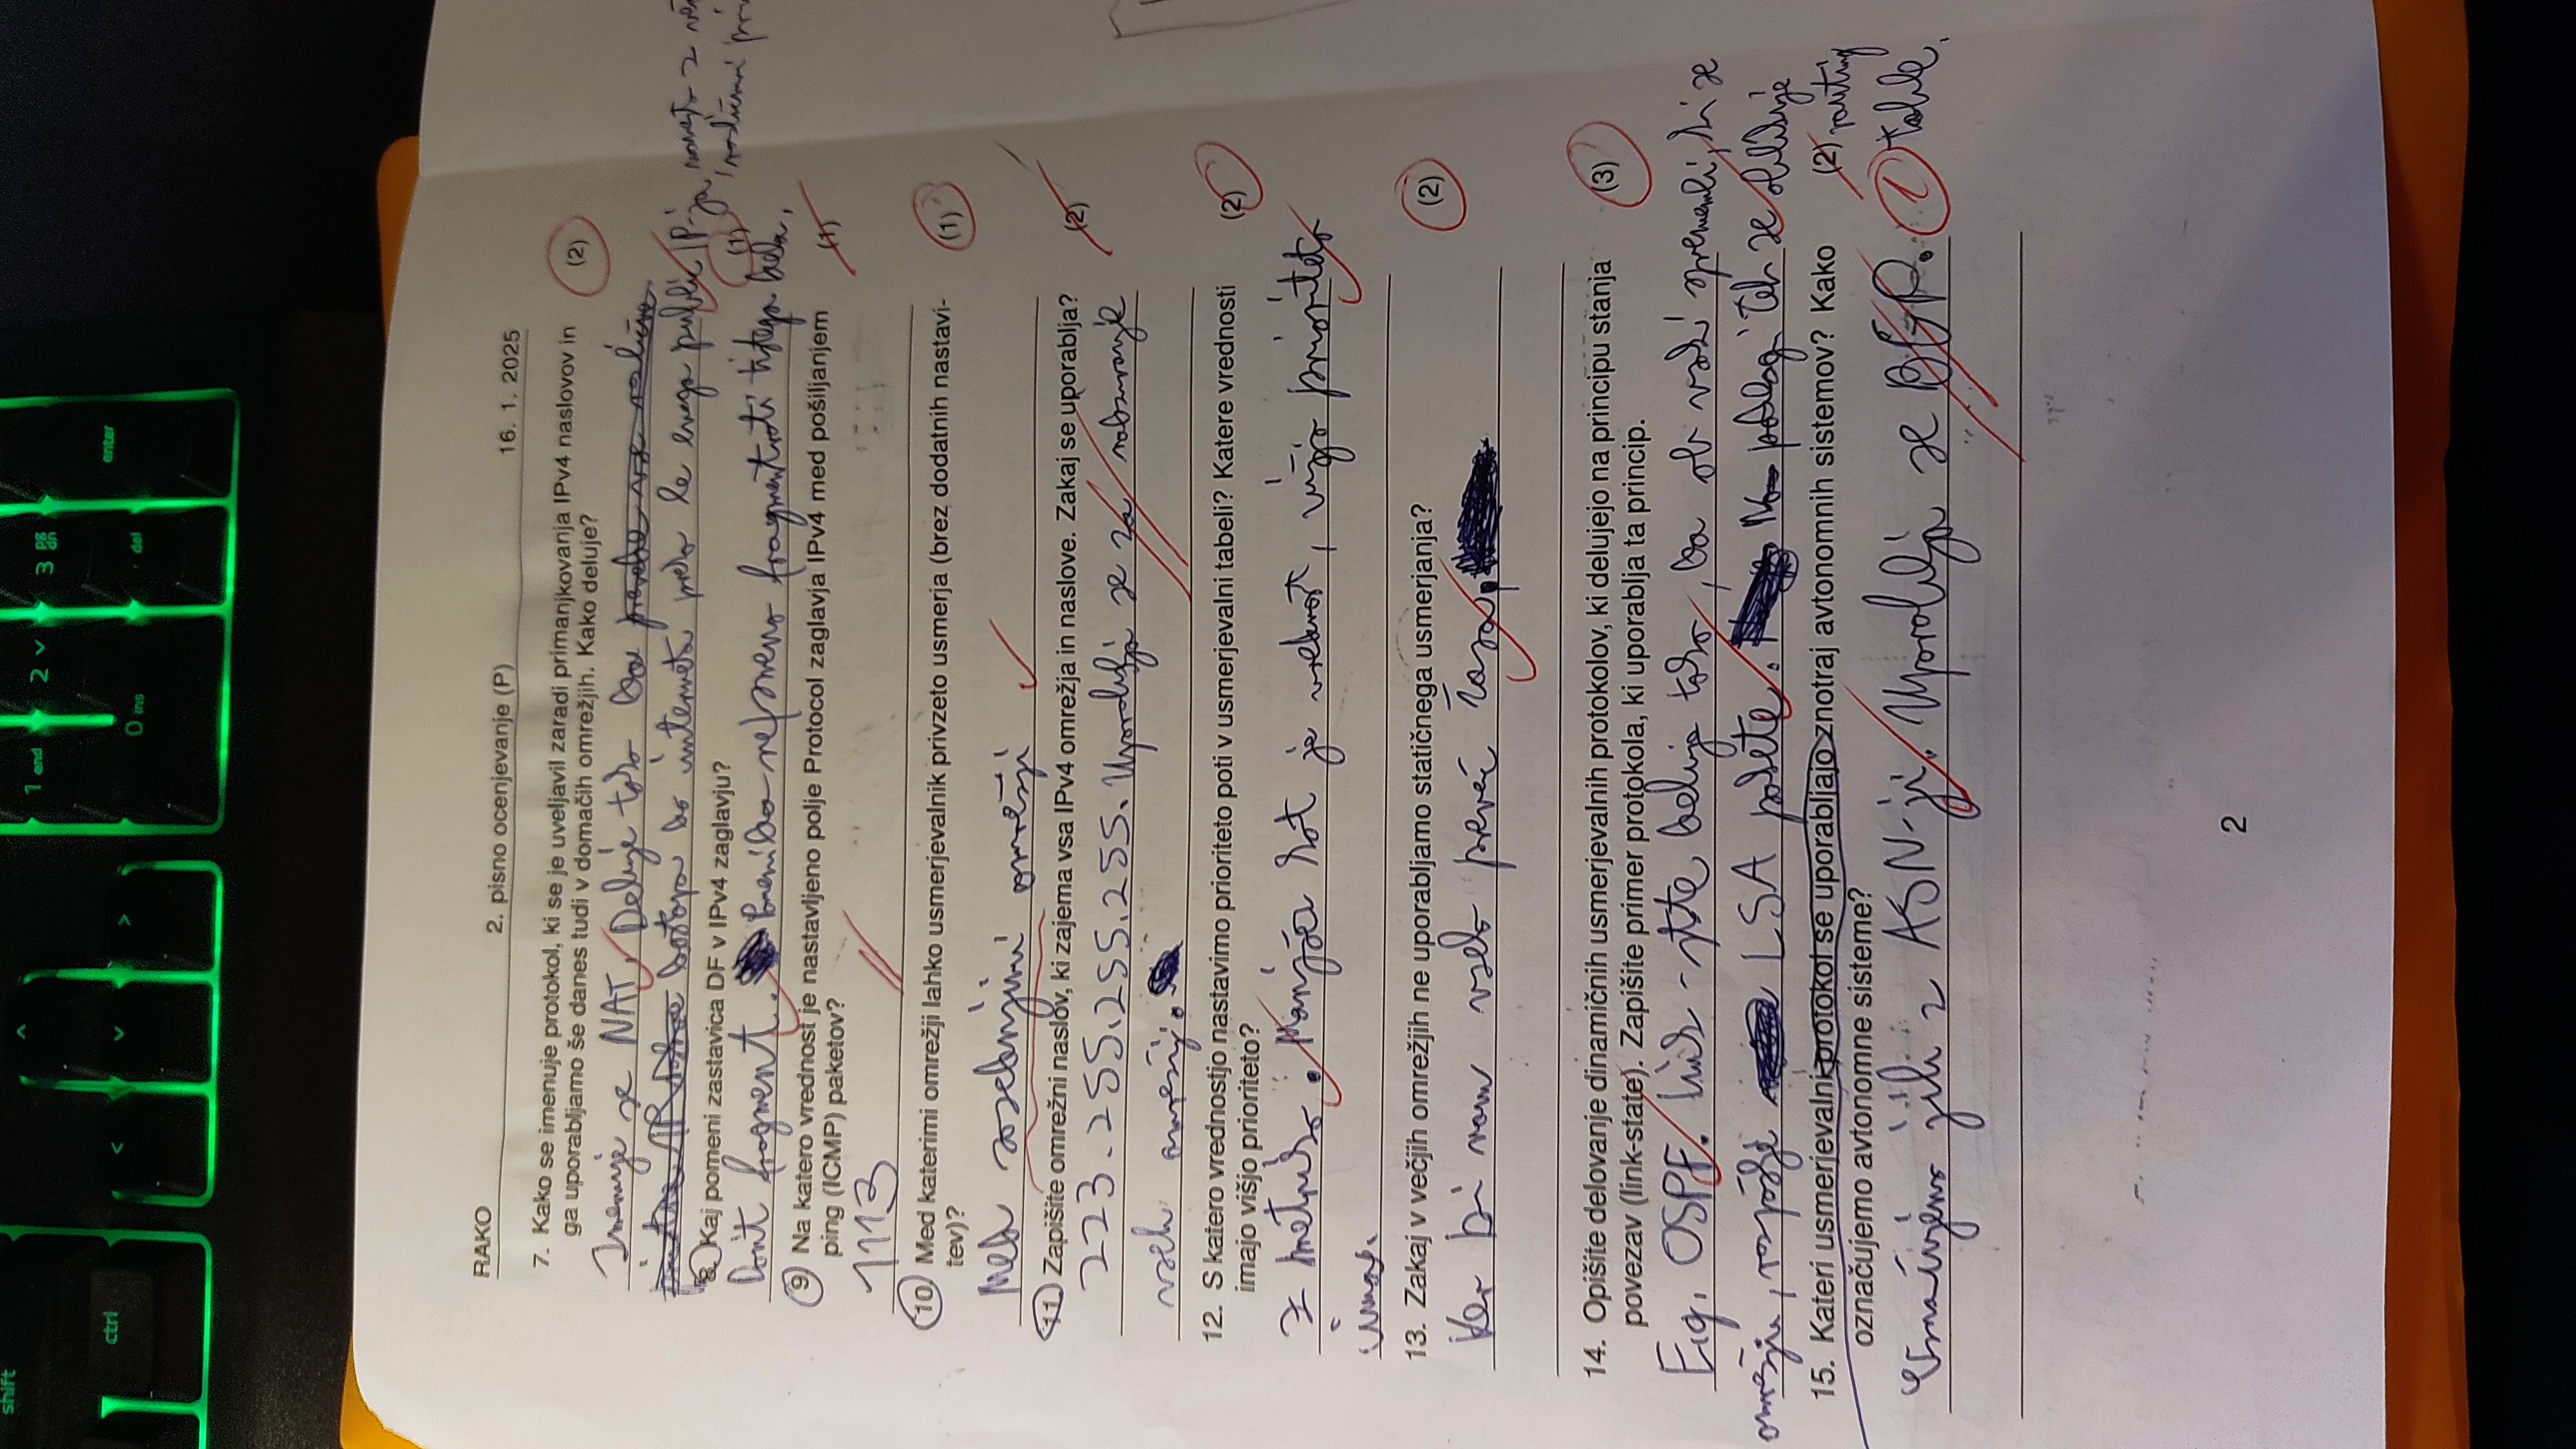 shift
ctrl
<
^
v
>
1 end
2 v
3 pg dn
0 ins
. del
enter
RAKO 2. pisno ocenjevanje (P) 16. 1. 2025
7. Kako se imenuje protokol, ki se je uveljavil zaradi primanjkovanja IPv4 naslovov in (2)
ga uporabljamo še danes tudi v domačih omrežjih. Kako deluje?
Imenuje se NAT. Deluje tako da
dostopa do interneta preko le enega public IP-ja namesto z
različnimi
8. Kaj pomeni zastavica DF v IPv4 zaglavju? (1)
Don't fragment. Pomeni da ne smemo fragmentirati tistega dela.
9. Na katero vrednost je nastavljeno polje Protocol zaglavja IPv4 med pošiljanjem (1)
ping (ICMP) paketov?
1113
10. Med katerimi omrežji lahko usmerjevalnik privzeto usmerja (brez dodatnih nastavi- (1)
tev)?
Med sosednjimi omrežji
11. Zapišite omrežni naslov, ki zajema vsa IPv4 omrežja in naslove. Zakaj se uporablja? (2)
223.255.255.255. Uporablja se za
vseh omrežij.
12. S katero vrednostjo nastavimo prioriteto poti v usmerjevalni tabeli? Katere vrednosti (2)
imajo višjo prioriteto?
Z metriko. Manjša kot je vrednost, višjo prioriteto
ima.
13. Zakaj v večjih omrežjih ne uporabljamo statičnega usmerjanja? (2)
Ker bi nam vzelo preveč časa.
14. Opišite delovanje dinamičnih usmerjevalnih protokolov, ki delujejo na principu stanja (3)
povezav (link-state). Zapišite primer protokola, ki uporablja ta princip.
E.g. OSPF. Link-state deluje tako, da ob vsaki spremembi, ki se
omrežju, razpošlje LSA pakete. Na podlagi teh se oblikuje
routing
table.
15. Kateri usmerjevalni protokol se uporabljajo znotraj avtonomnih sistemov? Kako (2)
označujemo avtonomne sisteme?
Označujemo jih z ASN-ji. Uporablja se BGP. 1
2